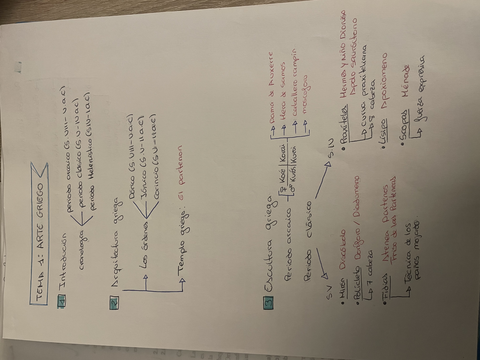 TEMA 1: ARTE GRIEGO
1 Introducción
cronología
periodo arcaico (S VIII - V a.C)
periodo clásico (S V - IV a.C)
periodo Helenístico (S IV - I a.C)
2 Arquitectura griega
Los órdenes
Dórico (S VIII - V a.C)
Jónico (S V - II a.C)
corintio (S V - II a.C)
Templo griego: El partenon
3 Escultura griega
Periodo arcaico
♀ Koré / Korai
♂ Kurós / Kuroi
Dama de Auxerre
Hera de Samos
caballero rampin
moscóforo
Periodo clásico
S V
• Miron Discóbolo
• Policleto Doríforo / Diadúmeno
7 cabeza
• Fidias Atenea Partenos
Friso de las Panateneas
Técnica de los
paños mojados
S IV
• Praxíteles Hermes y niño Dioniso
Apolo Sauróctono
curva praxiteliana
8 cabeza
• Lisipo Apoxiomeno
• Scopas Ménade
fuerza expresiva